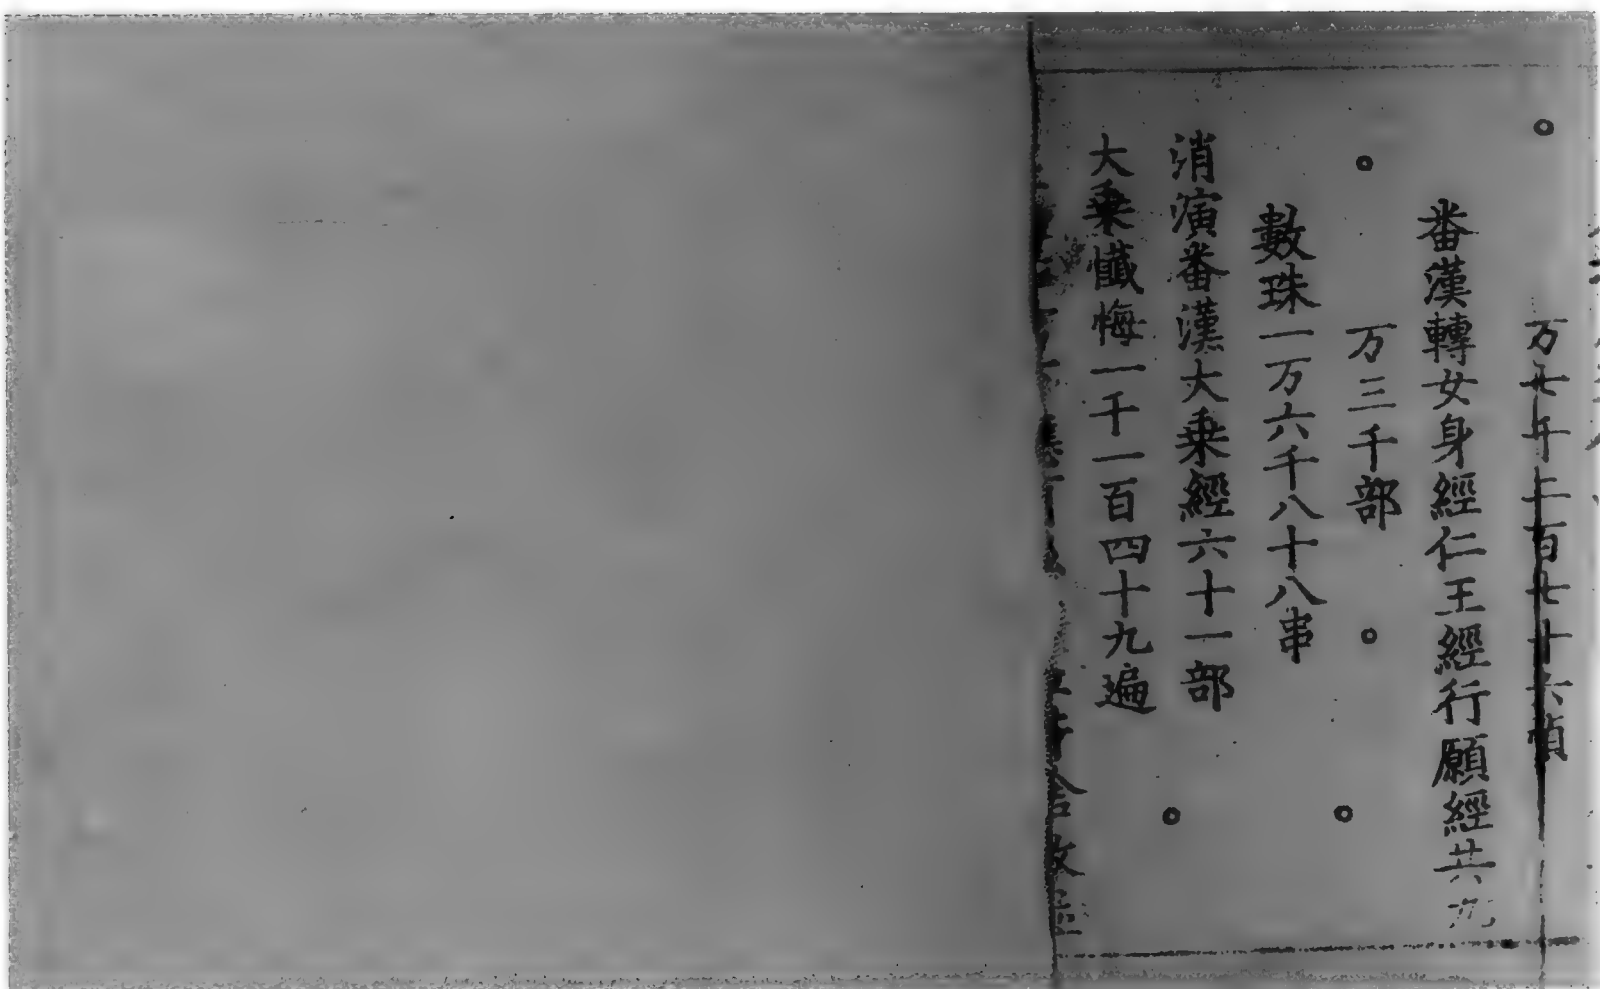 万七千二百七十六幀
番漢轉女身經仁王經行願經共九
万三千部
數珠一万六千八十八串
消演番漢大乘經六十一部
大乘懺悔一千一百四十九遍